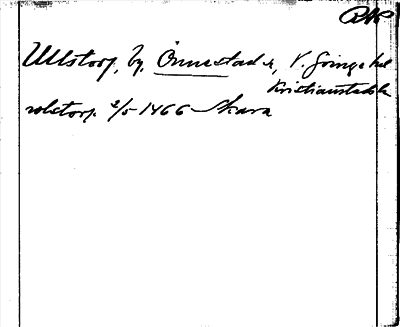 Ullstorp, by, Önnestads sn, V. Göinge hd
Kristianstads län
rolstorp 2/5 1466 Skara